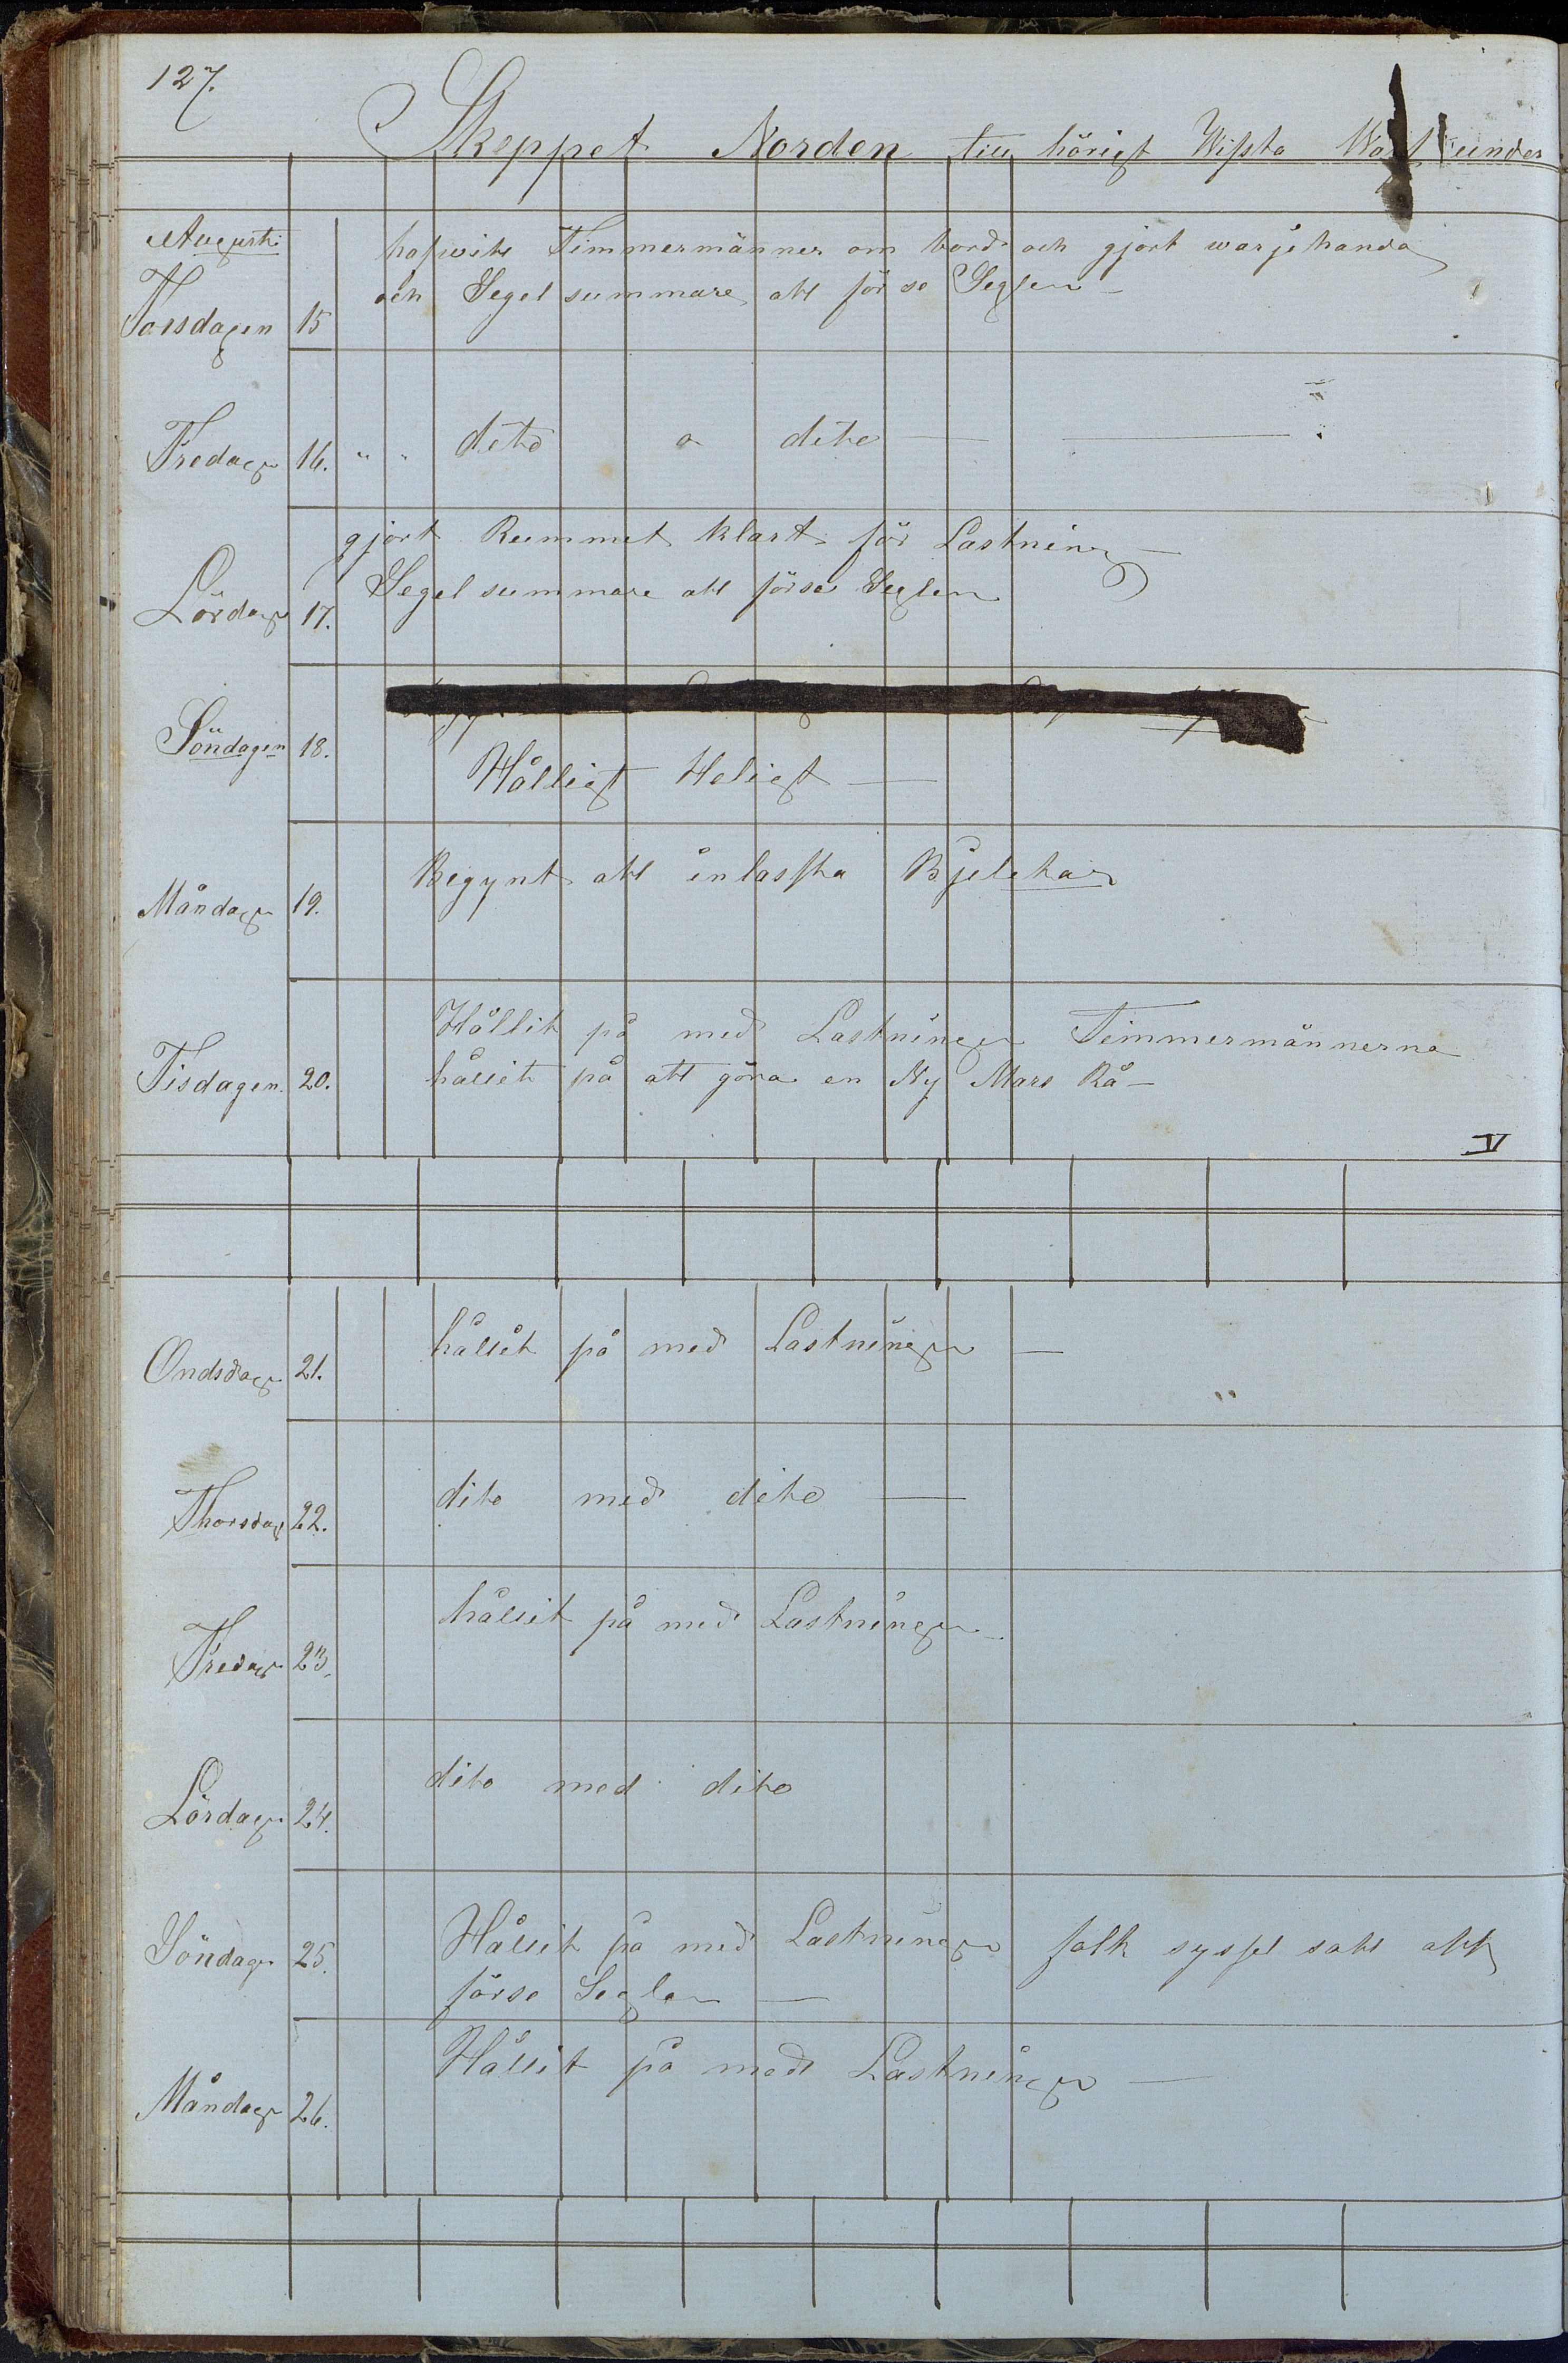 127.
Skeppet Norden till hörigt Wifsta Warf under
Augusti
hafwits Timmermänner om bord och gjort warjehanda
och Segel summare att för se Seglen —
Torsdagen 15
Fredag 16. " " dito o dito — —
gjort Rummet klart för Lastning —
Segel summare att förse Seglen
Lördag 17.
Söndagen 18.
Hålligt Heligt —
Begynt att inlasta Bjelckar
Måndag 19.
Hållit på med Lastningen Timmermännerna
Tisdagen. 20. hållit på att göra en Ny Mars Rå —
V
hållit på med Lastningen —
Ondsdag 21.
dito med dito —
Thorsdag 22.
hållit på med Lastningen —
Fredag 23.
dito med dito
Lördag 24.
Söndag 25. Hållit på med Lastningen folk syssel satt att
förse Seglen —
Hållit på med Lastningen —
Måndag 26.